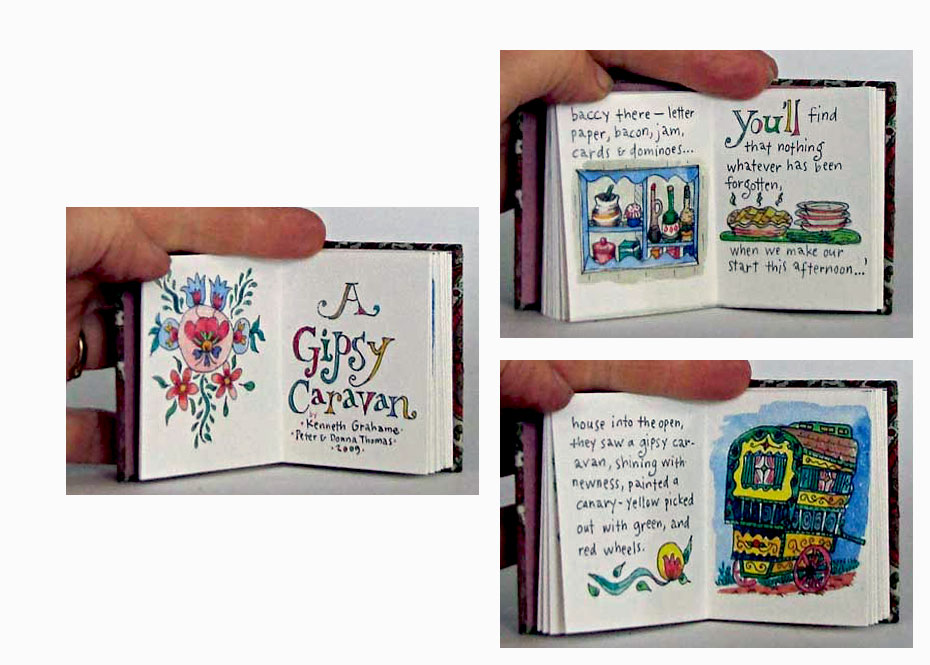 A
Gipsy
Caravan
by
• Kenneth Grahame •
• Peter & Donna Thomas •
• 2009 •
baccy there — letter
paper, bacon, jam,
cards & dominoes...
You'll find
that nothing
whatever has been
forgotten,
when we make our
start this afternoon...'
house into the open,
they saw a gipsy car-
avan, shining with
newness, painted a
canary-yellow picked
out with green, and
red wheels.